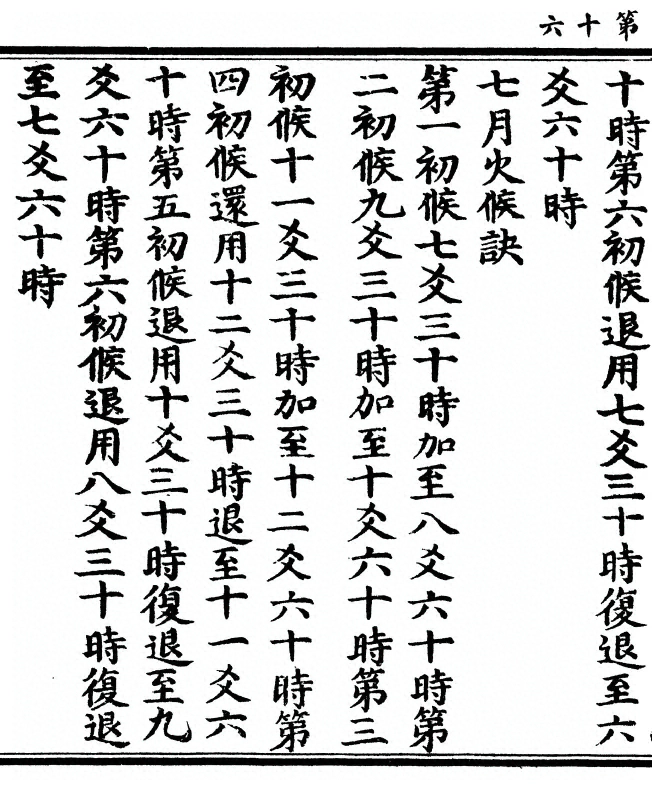 第十六
十時第六初候退用七爻三十時復退至六
爻六十時
七月火候訣
第一初候七爻三十時加至八爻六十時第
二初候九爻三十時加至十爻六十時第三
初候十一爻三十時加至十二爻六十時第
四初候還用十二爻三十時退至十一爻六
十時第五初候退用十爻三十時復退至九
爻六十時第六初候退用八爻三十時復退
至七爻六十時